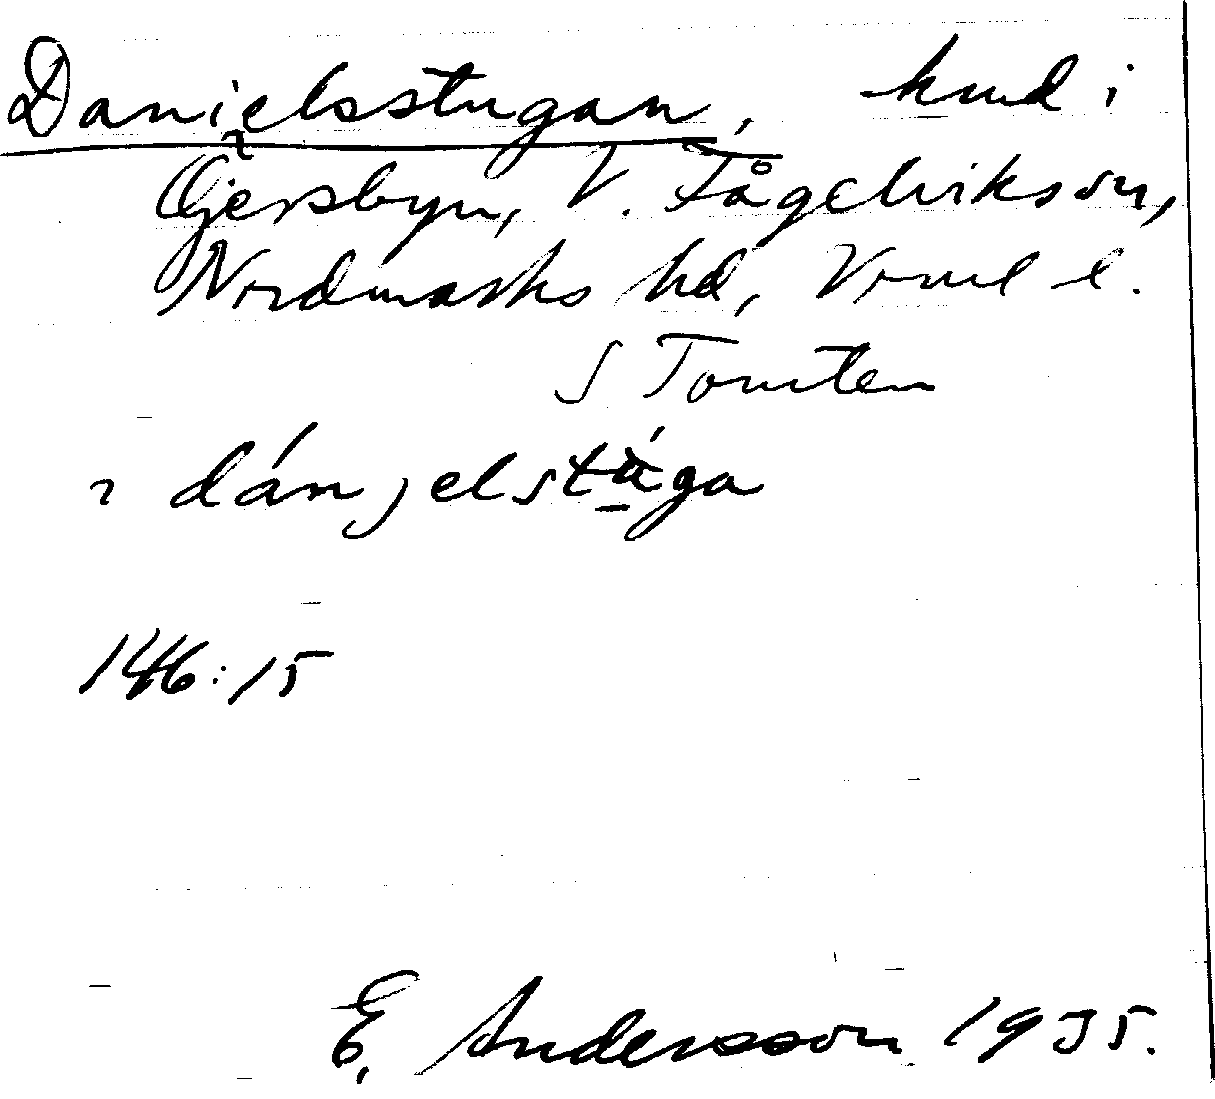 Danielsstugan, kmd i
Gjersbyn, V. Fågelviks sn,
Nordmarks hd, Vrml l.
S Tomten
dánjelstúga
146:15
E. Andersson 1935.